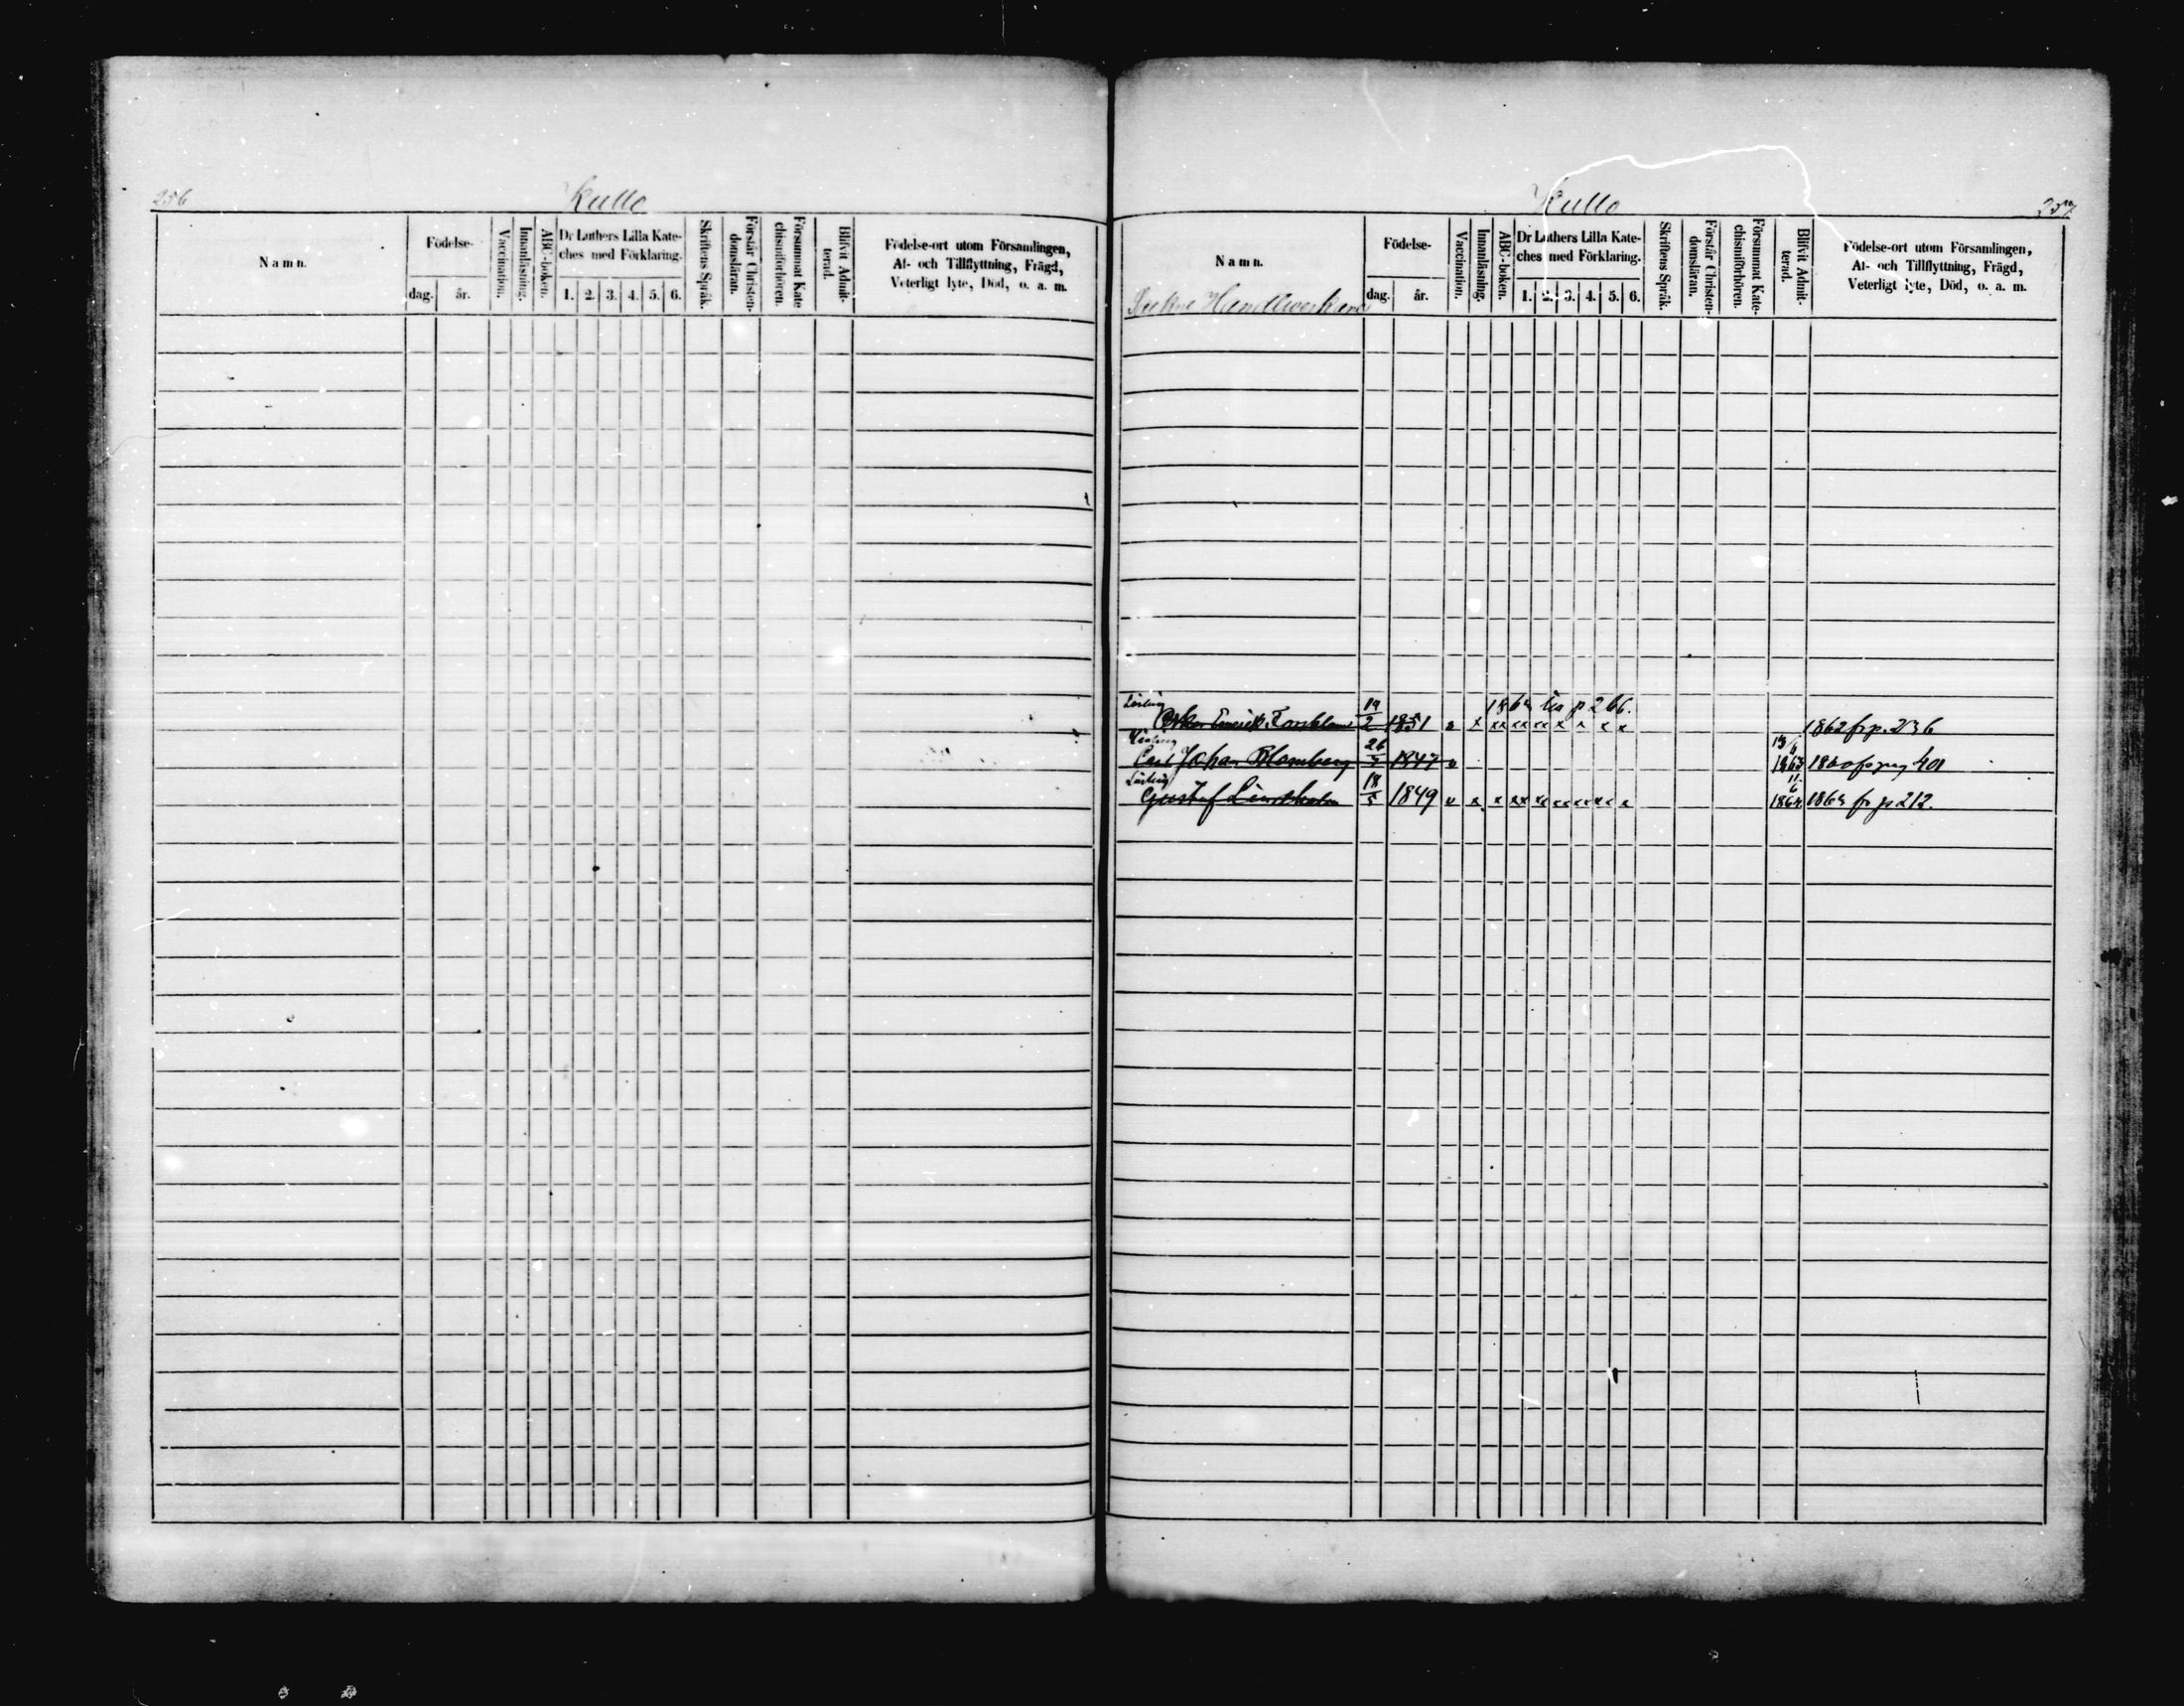 256
Kullo
Namn.
Födelse-
dag. år.
Vaccination.
Innanläsning.
ABC-boken.
Dr Luthers Lilla Kate-
ches med Förklaring.
1. 2. 3. 4. 5. 6.
Skriftens Språk.
Förstår Christen-
domsläran.
Försummat Kate
chismiförhören.
Blifvit Admit-
terad.
Födelse-ort utom Församlingen,
Af- och Tillflyttning, Frägd,
Veterligt lyte, Död, o. a. m.
Kullo
257
Namn.
Födelse-
dag. år.
Vaccination.
Innanläsning.
ABC-boken.
Dr Luthers Lilla Kate-
ches med Förklaring.
1. 2. 3. 4. 5. 6.
Skriftens Språk.
Förstår Christen-
domsläran.
Försummat Kate-
chismiförhören.
Blifvit Admit-
terad.
Födelse-ort utom Församlingen,
Af- och Tillflyttning, Frägd,
Veterligt lyte, Död, o. a. m.
Handtverkare
Lärling 19 p 266.
2 1851 v x xx xx xx x x x x 1862 fr p. 236
Lärling 26
Carl Johan Blomberg 1847 v 1863 401
Lärling 18 11/6
Gustaf Lindholm 5 1849 v x x xx xx xx xx x x 1864 fr p 212.